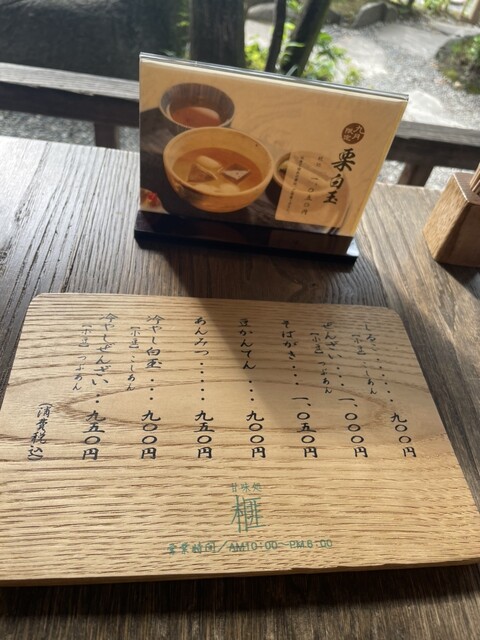 九月
限定
栗白玉
一、〇五〇円
しる‥‥‥九〇〇円
[小豆]こしあん
ぜんざい‥‥一、〇〇〇円
[小豆]つぶあん
そばがき‥‥一、〇五〇円
豆かんてん‥‥九〇〇円
あんみつ‥‥‥九五〇円
冷やし白玉‥‥九〇〇円
[小豆]こしあん
冷やしぜんざい‥‥九五〇円
[小豆]つぶあん
(消費税込)
甘味処
榧
営業時間/AM10:00~PM.6:00